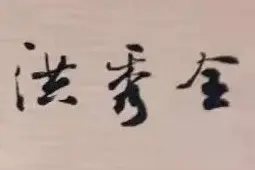 洪秀全